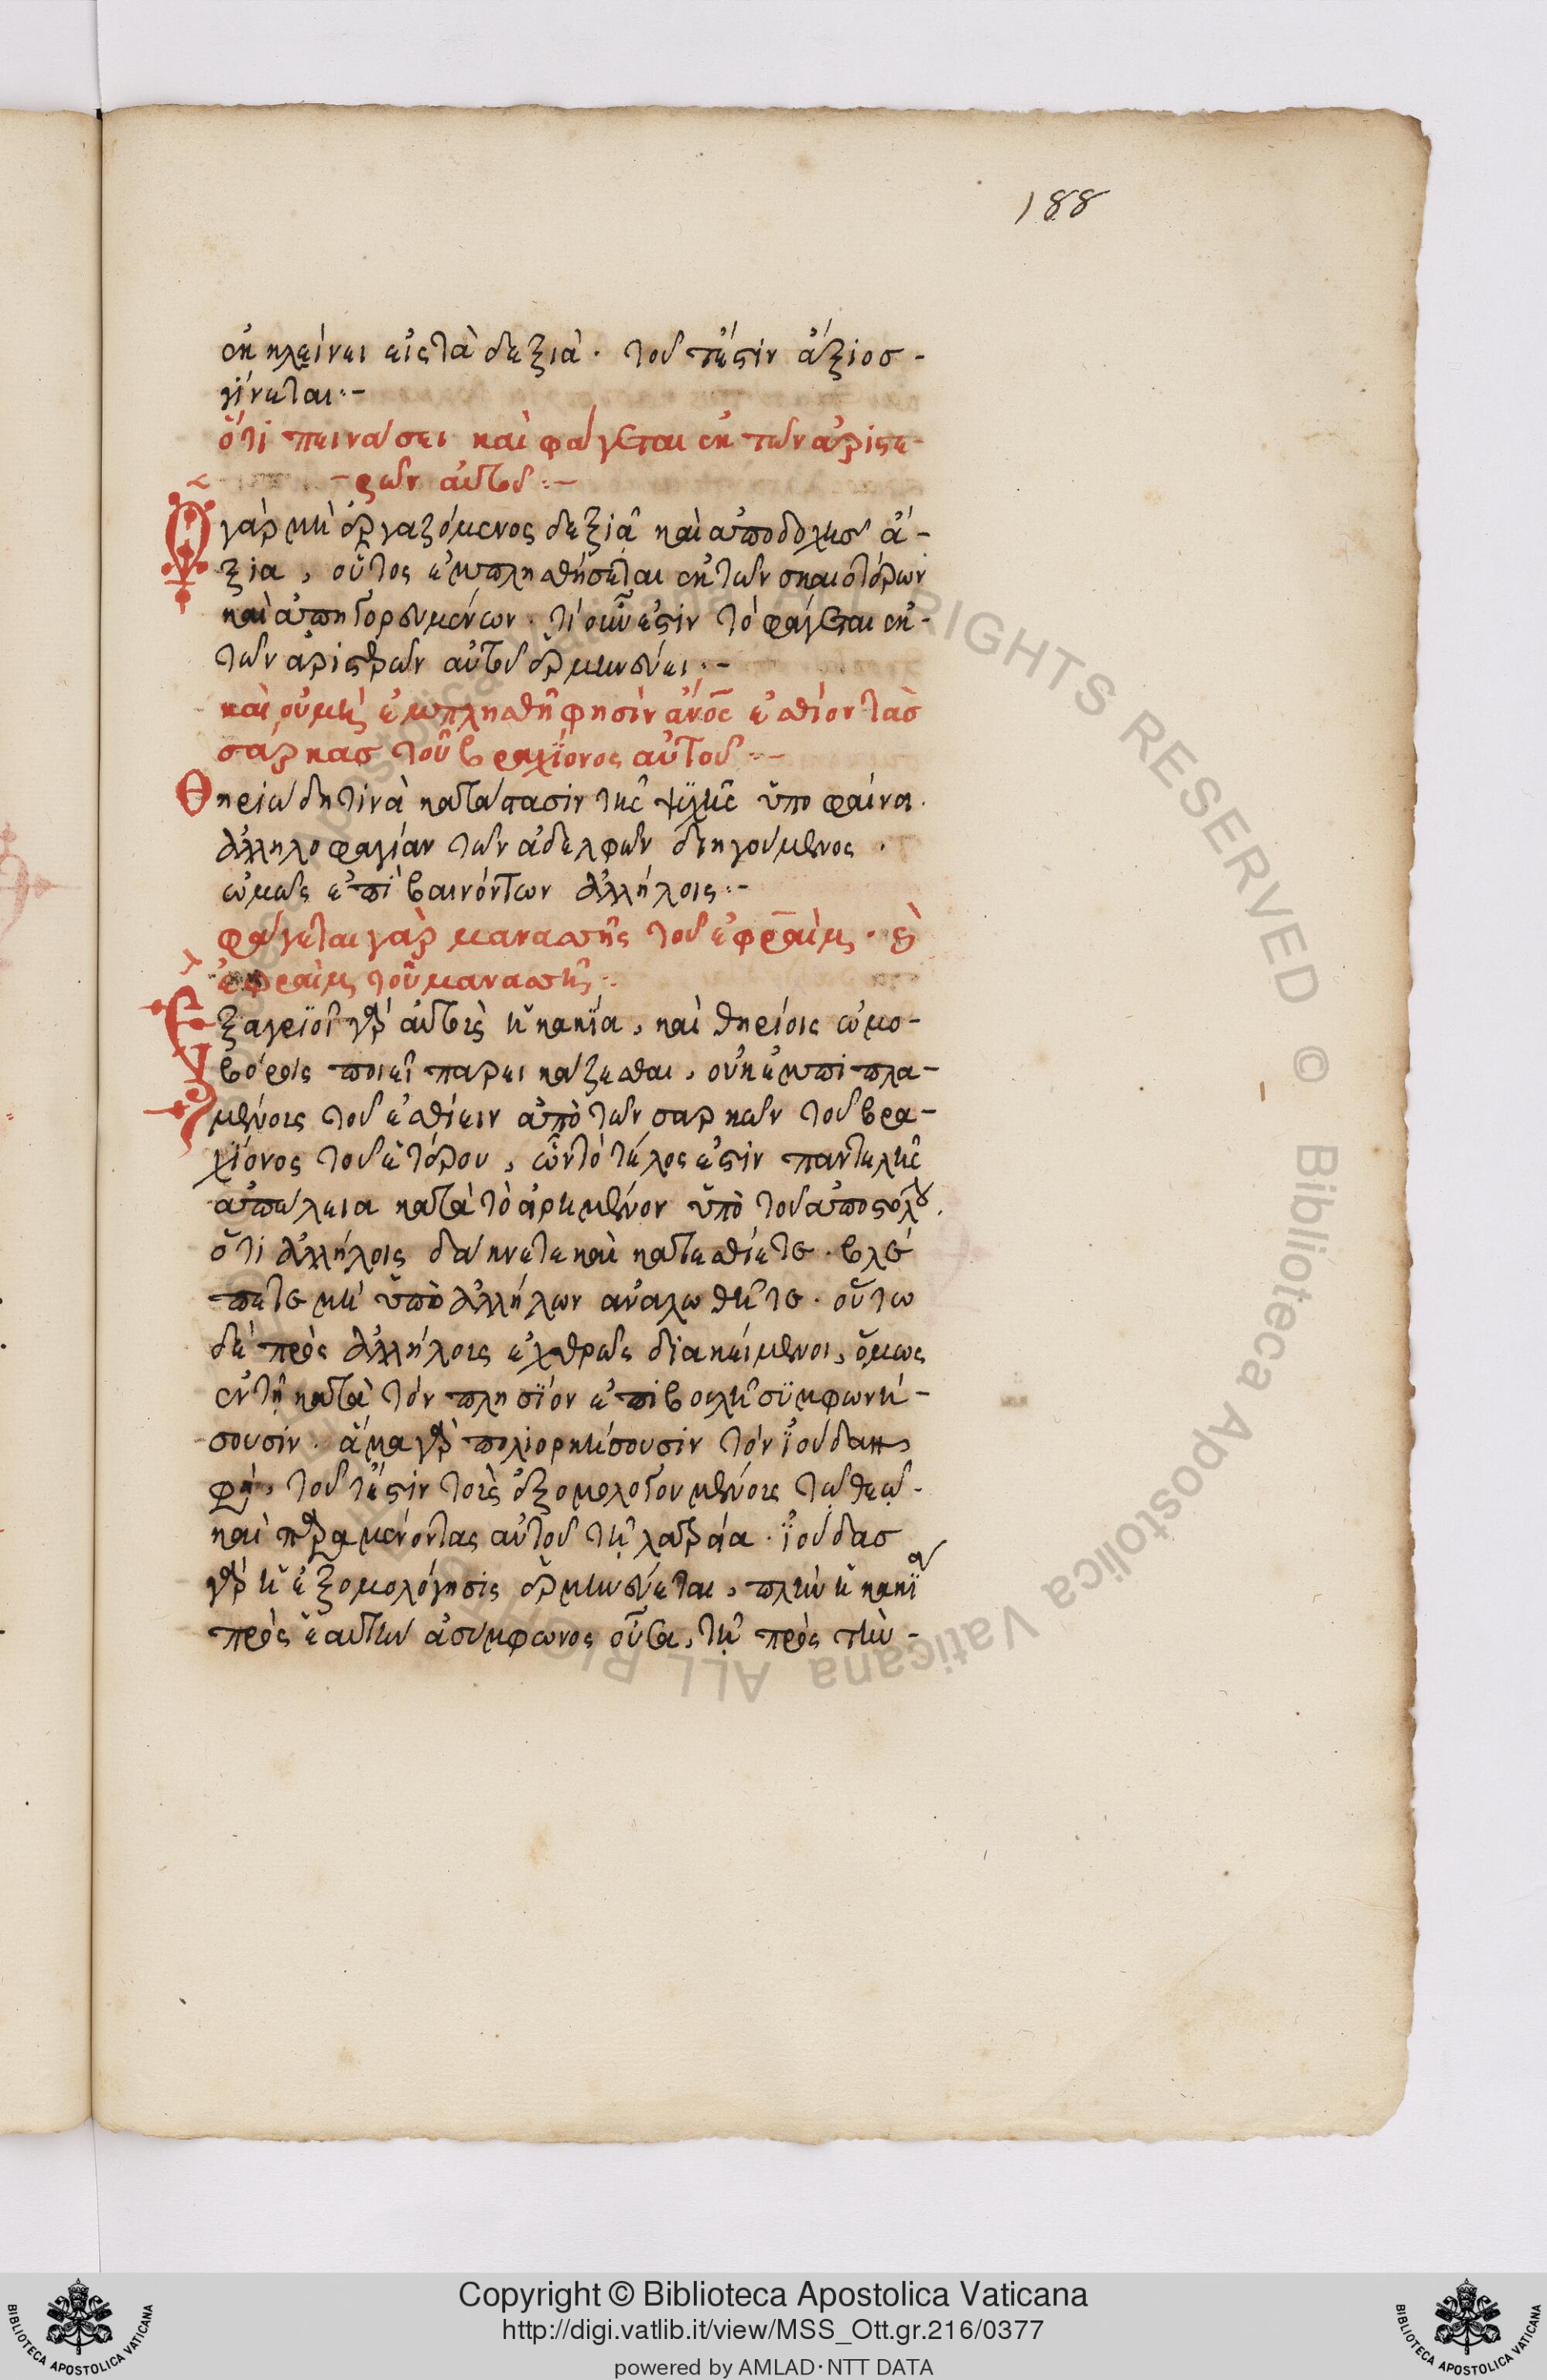 188
ἐκκλείνει εἰς τὰ δεξιὰ· τουτέστιν ἄξιοσ -
γίνεται:-
ὅτι πεινάσει καὶ φάγεται ἐκ τῶν ἀριστε-
-ρῶν αὐτοῦ:-
Ὁ γὰρ μὴ ἐργαζόμενος δεξιὰ καὶ ἀποδοχῆσ ἄ-
ξια, οὗτος ἐμπλησθήσεται ἐκ τῶν σκαιοτέρων
καὶ ἀπηγορευμένων. τί οὖν ἐστιν τὸ φάγεται ἐκ-
τῶν ἀριστερῶν αὐτοῦ ἑρμηνεύει:-
καὶ οὐ μὴ ἐμπλησθῇ φησὶν ἄνος ἐσθίον τὰσ
σάρκασ τοῦ βραχίονος αὐτοῦ:-
Θηριώδη τινὰ κατάστασιν τῆς ψυχῆς ὑποφαίνει.
ἀλληλοφαγίαν τῶν ἀδελφῶν διηγούμενος.
ὠμῶς ἐπιβαινόντων ἀλλήλοις:-
φάγεται γὰρ μανασσῆς τοῦ ἐφραὶμ. καὶ
ἐφραὶμ τοῦ μανασσῆ:
Ἐξαγριοῖ γὰρ αὐτοὺς ἡ κακία, καὶ θηρίοις ὠμο-
βόροις ποιεῖ παρεικάζεσθαι, οὐκ ἐμπιπλα-
μένοις τοῦ ἐσθίειν ἀπὸ τῶν σαρκῶν τοῦ βρα-
χίονος τοῦ ἑτέρου, ὧν τὸ τέλος ἐστὶν παντελὴς
ἀπώλεια κατὰ τὸ εἰρημένον ὑπὸ τοῦ ἀποστόλου.
ὅτι ἀλλήλοις δάκνετε καὶ κατεσθίετε. βλέ
πετε μὴ ὑπὸ ἀλλήλων ἀναλωθῆτε. οὕτω
δὲ πρὸς ἀλλήλους ἐχθρῶς διακείμενοι, ὅμως
ἐν τῇ κατὰ τὸν πλησίον ἐπιβουλῇ συμφωνή-
σουσιν. ἅμα γὰρ πολιορκήσουσιν τὸν ἰούδαν,
φη, τουτέστιν τοὺς ἐξομολογουμένους τῷ θεῷ.
καὶ παραμένοντας αὐτοῦ τῇ λατρεία. ἰούδασ
γὰρ ἡ ἐξομολόγησις ἑρμηνεύεται, πλὴν ἡ κακία
πρὸς ἑαυτὴν ἀσύμφωνος οὖσα, τῇ πρὸς τὴν -
Copyright © Biblioteca Apostolica Vaticana
http://digi.vatlib.it/view/MSS_Ott.gr.216/0377
powered by AMLAD·NTT DATA